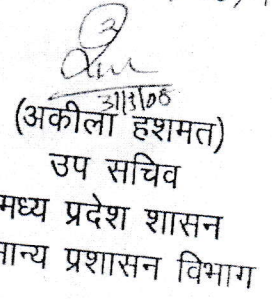 3
31/3/08
(अकीला हशमत)
उप सचिव
मध्य प्रदेश शासन
ान्य प्रशासन विभाग